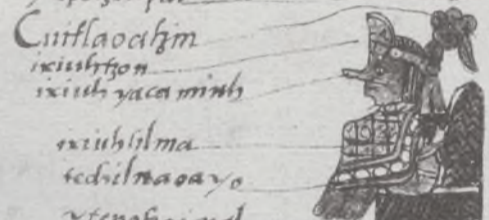 Cuitlaoatzin
ixiuhtzon
ixiuh yaca minh
ixiuhtilma
techilnaoayo